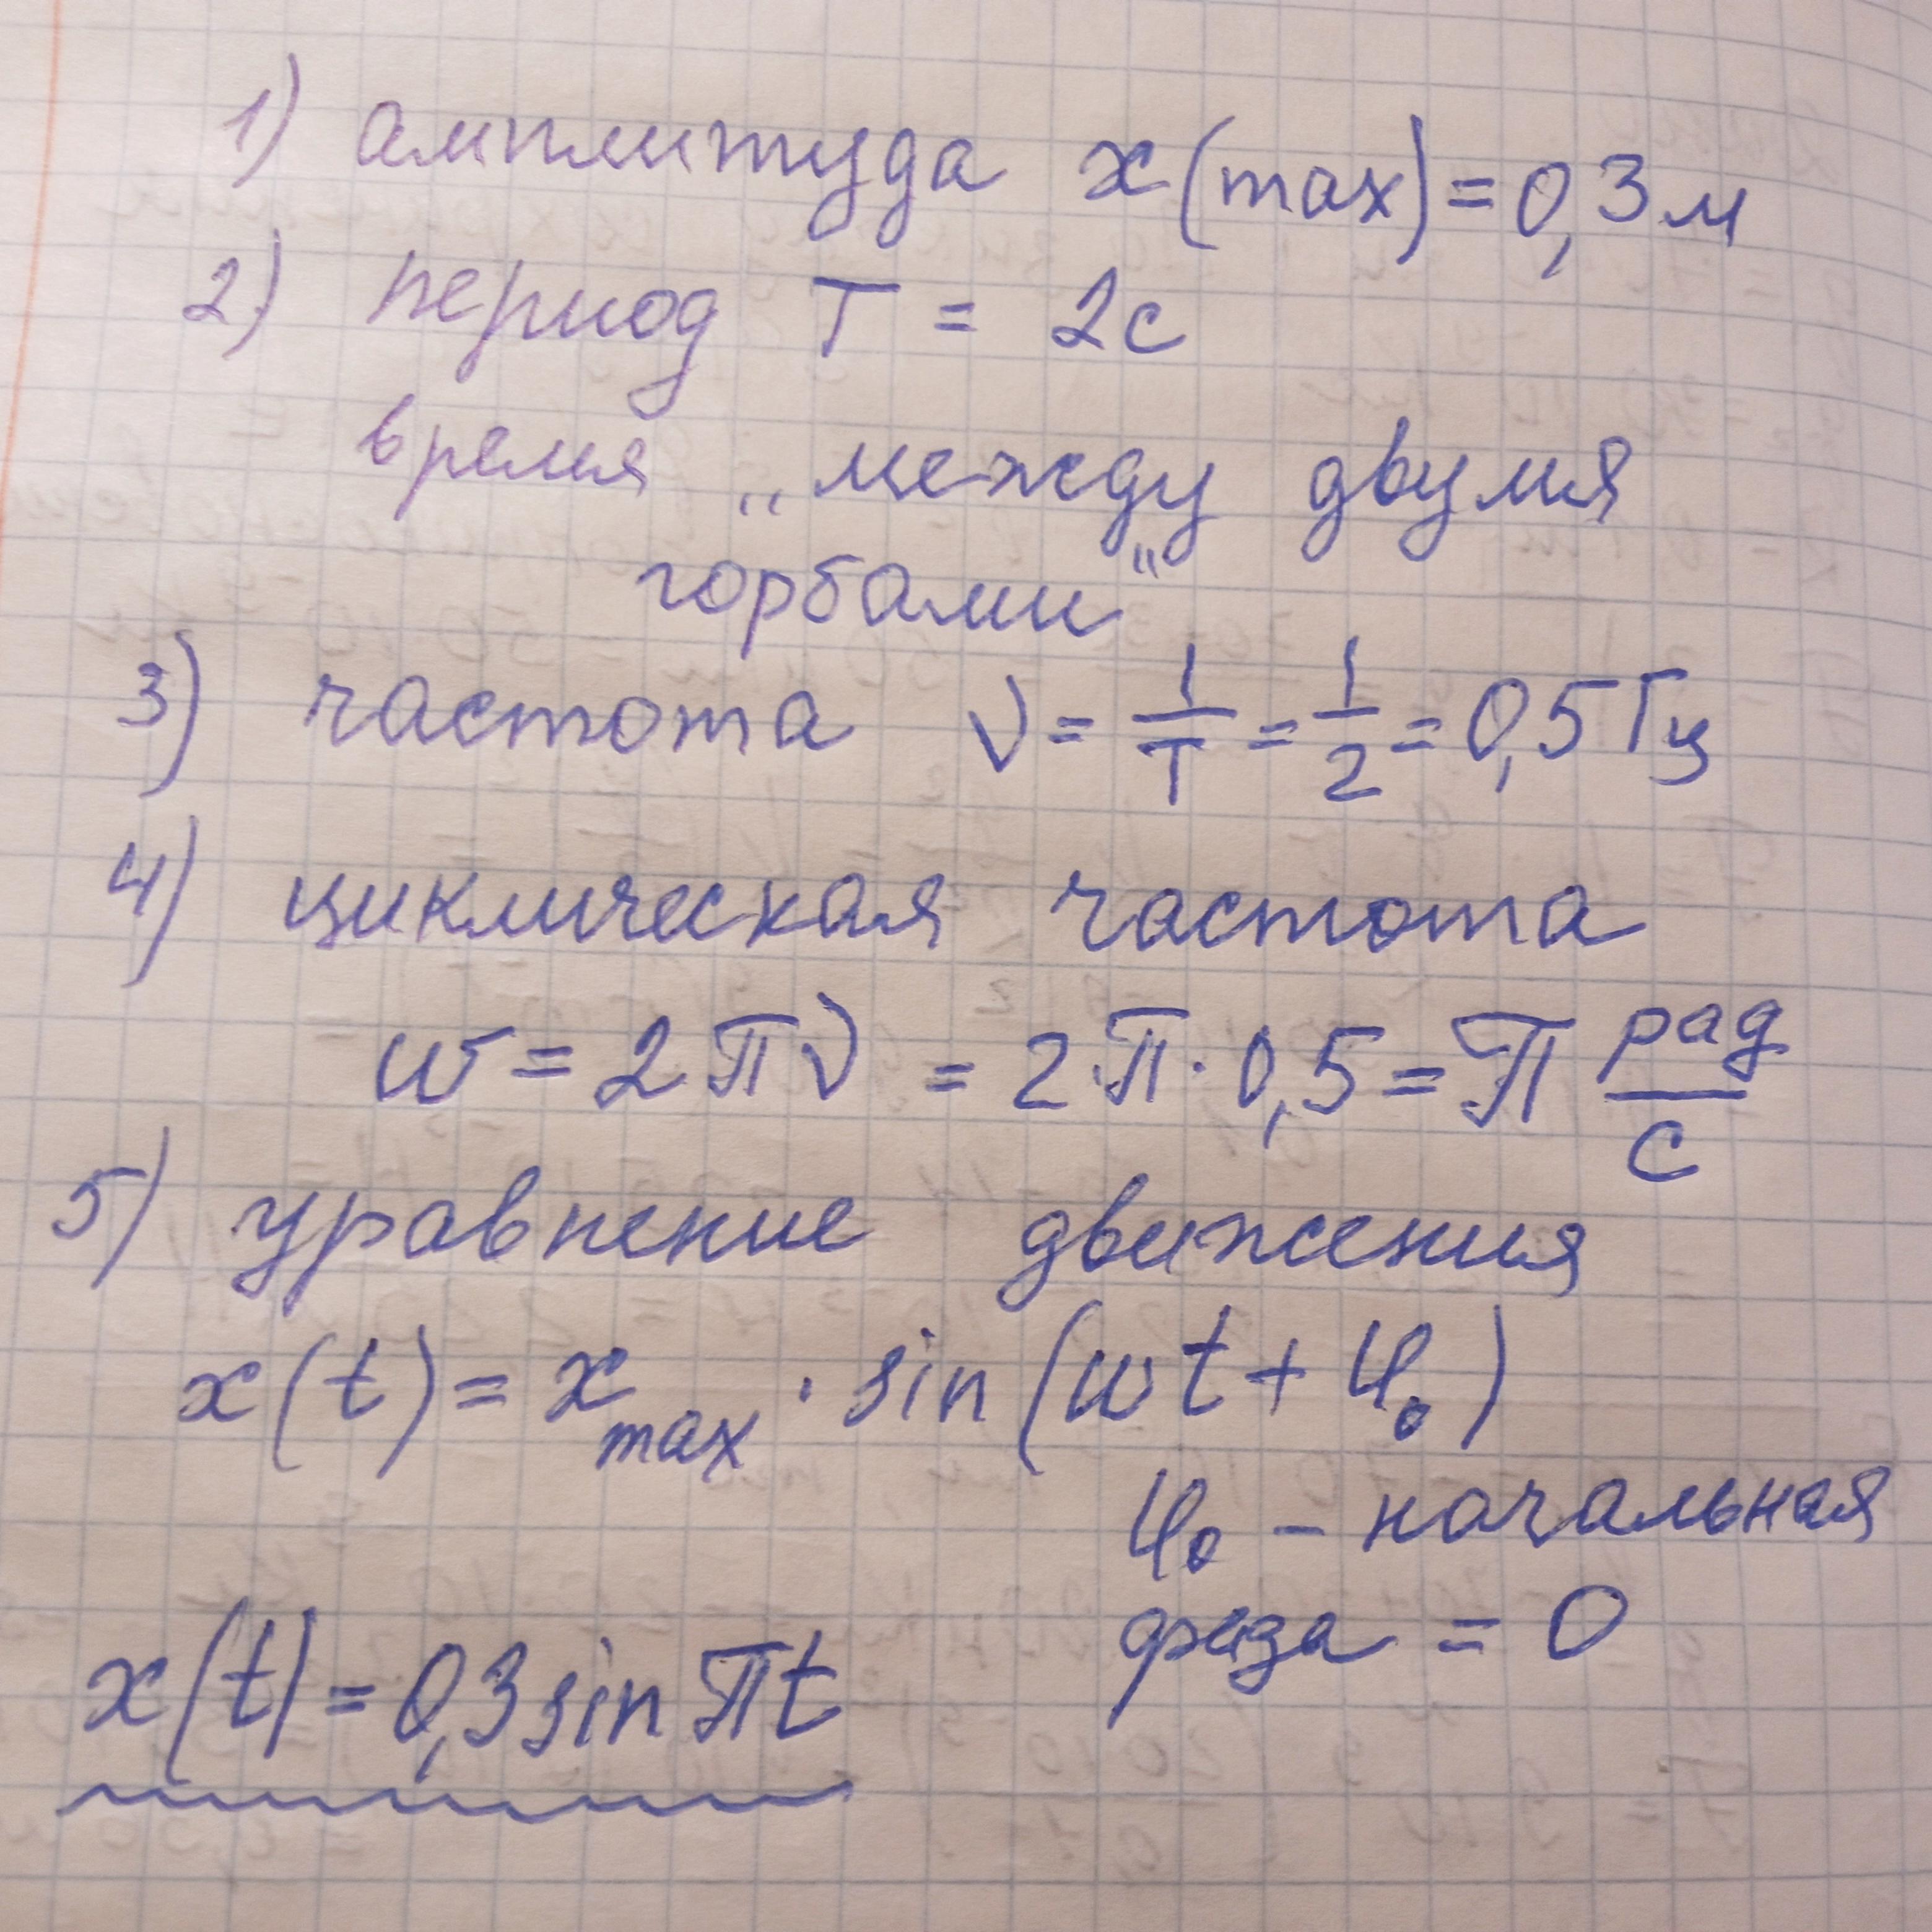 1) амплитуда x(max)=0,3м
2) период T = 2с
время „между двумя
горбами“
3) частота ν = 1/T = 1/2 = 0,5 Гц
4) циклическая частота
w = 2πν = 2π·0,5 = π рад/с
5) уравнение движения
x(t) = x_max · sin(wt + φ₀)
φ₀ – начальная
фаза = 0
x(t) = 0,3 sin πt